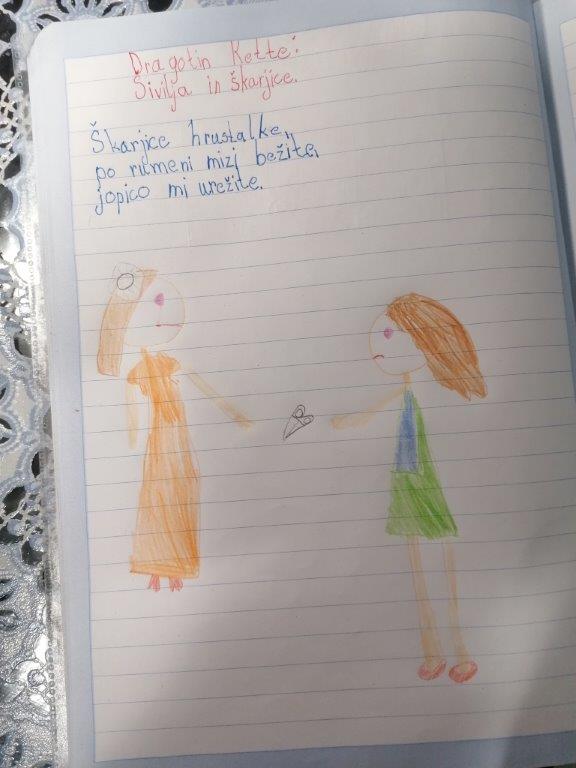 Dragotin Kette:
Šivilja in škarjice.
Škarjice hrustalke,
po rumeni mizi bežite,
jopico mi urežite.